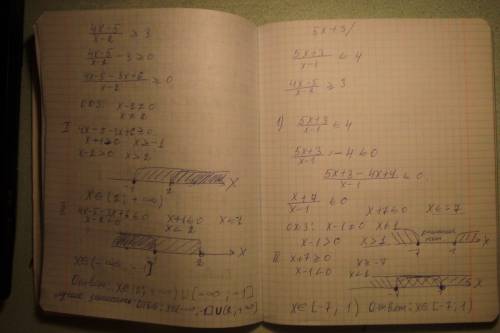 4x-5/x-2 ≥ 3
4x-5/x-2 - 3 ≥ 0
4x-5-3x+6/x-2 ≥ 0
ОДЗ: x-2≠0
x≠2
I 4x-5-3x+6≥0
x+1≥0 x≥-1
x-2>0 x>2
2 X
x∈(2; +∞)
II 4x-5-3x+6≤0 x+1≤0 x≤-1
x-2<0 x<2
-1 2 X
x∈(-∞; -1]
Ответ: x∈(2; +∞)∪(-∞; -1]
Ответ: x∈(-∞; -1]∪(2; +∞)
5x+3/
5x+3/x-1 ≤ 4
4x-5/x-2 ≥ 3
1) 5x+3/x-1 ≤ 4
5x+3/x-1 - 4 ≤ 0
5x+3-4x+4/x-1 ≤ 0
x+7/x-1 ≤ 0
x+7≤0 x≤-7
ОДЗ: x-1≠0 x≠1
x-1>0 x>1
решений нет
-7 1 x
II. x+7≥0 x≥-7
x-1<0 x<1
-7 1 X
x∈[-7; 1) Ответ: x∈[-7; 1)